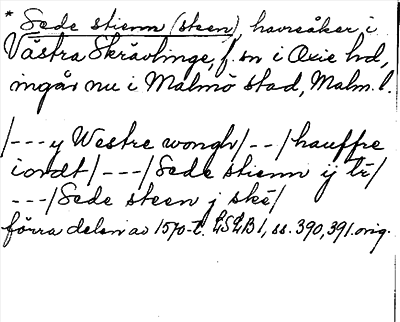 * Sede stienn (steen), havreåker i
Västra Skrävlinge, f. sn i Oxie hd,
ingår nu i Malmö stad, Malm. l.
/---y Westre wongh/--/hauffre
iordt/---/Sede stienn ij tr/
---/Sede steen j ske/
förra delen av 1570-t. LSLB 1, ss. 390, 391. orig.